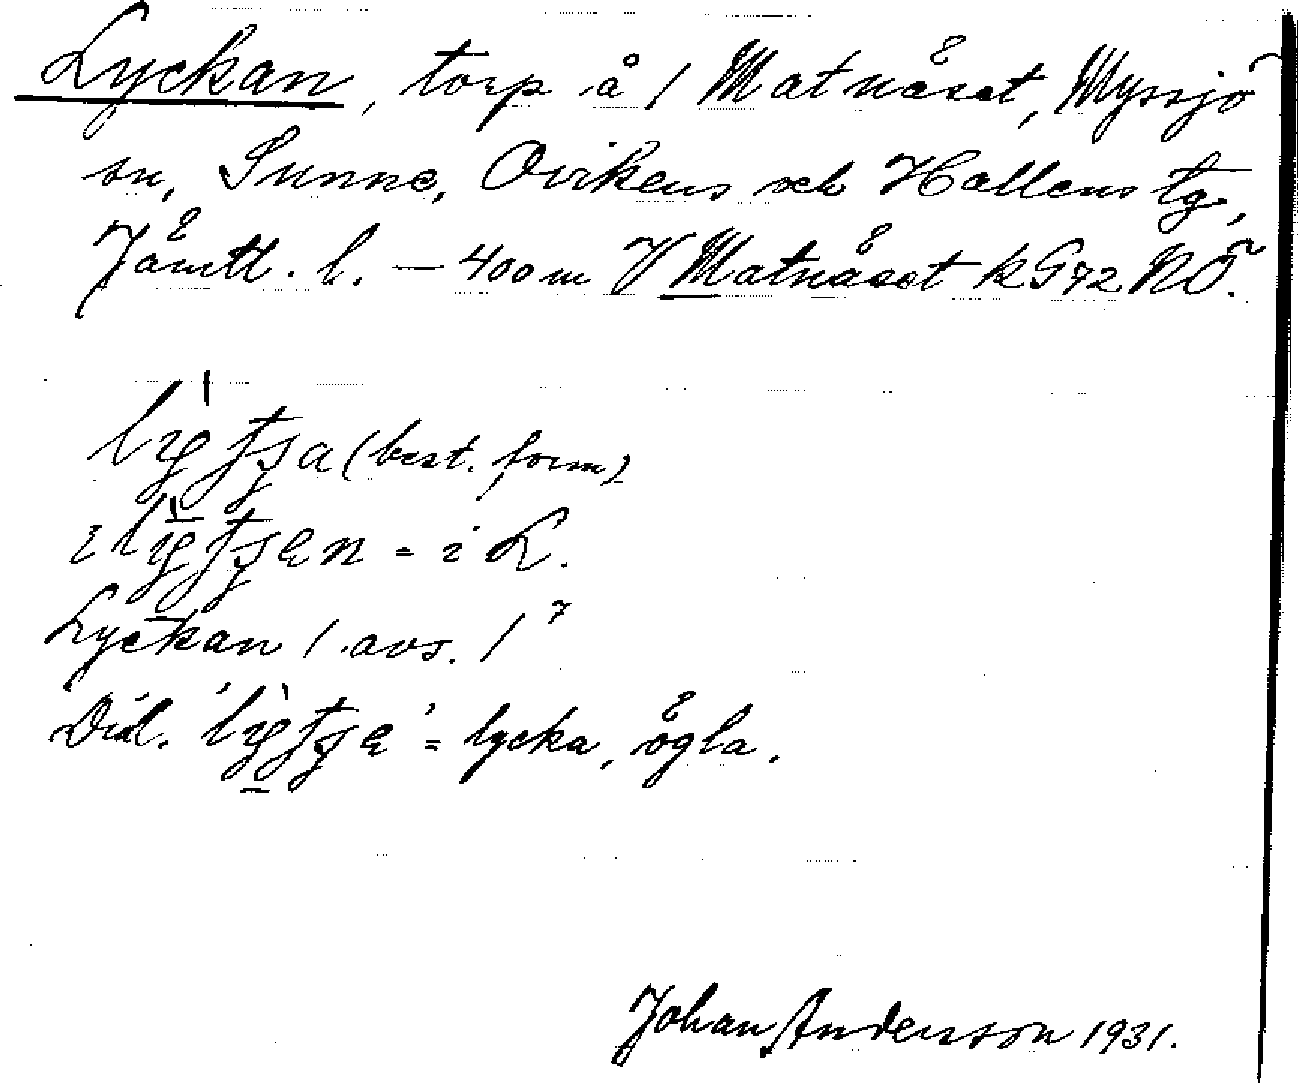 Lyckan, torp å 1 Matnäset, Myssjö
sn, Sunne, Ovikens och Hallens tg,
Jämtl. l. — 400 m V Matnäset kG72 NÖ.
(best. form)
= i L.
Lyckan 1 avs. 1⁷
Dial. = lycka, ögla.
Johan Andersson 1931.